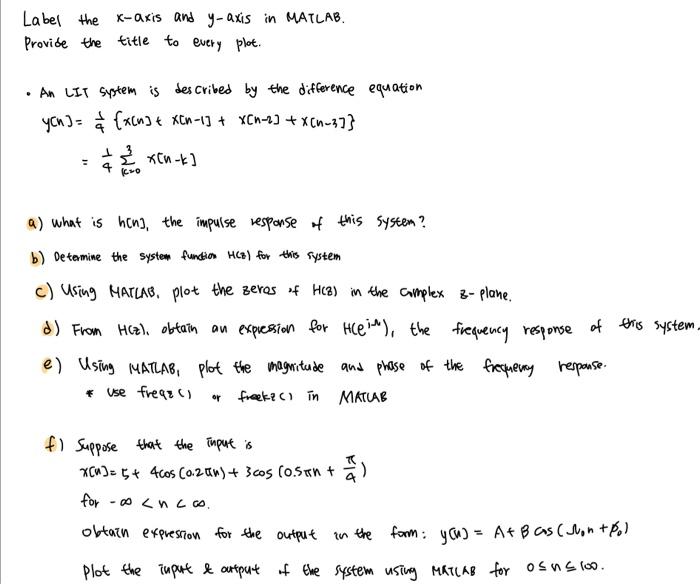 Label the x-axis and y-axis in MATLAB.
Provide the title to every plot.
• An LIT system is described by the difference equation
y[n] = 1/4 {x[n] + x[n-1] + x[n-2] + x[n-3]}
= 1/4 Σ_{k=0}^{3} x[n-k]
a) What is h[n], the impulse response of this system?
b) Determine the system function H(z) for this system
c) Using MATLAB, plot the zeros of H(z) in the complex z-plane.
d) From H(z), obtain an expression for H(e^{jΩ}), the frequency response of this system.
e) Using MATLAB, plot the magnitude and phase of the frequency response.
* use freqz() or freekz() in MATLAB
f) Suppose that the input is
x[n] = 5 + 4cos(0.2πn) + 3cos(0.5πn + π/4)
for -∞ < n < ∞.
obtain expression for the output in the form: y[n] = A + B cos(Ω₀n + φ₀)
Plot the input & output of the system using MATLAB for 0 ≤ n ≤ 100.